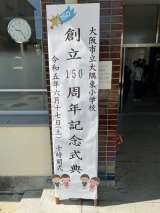 大阪市立大隅東小学校
創立150周年記念式典
令和五年六月十七日(土)十時開式